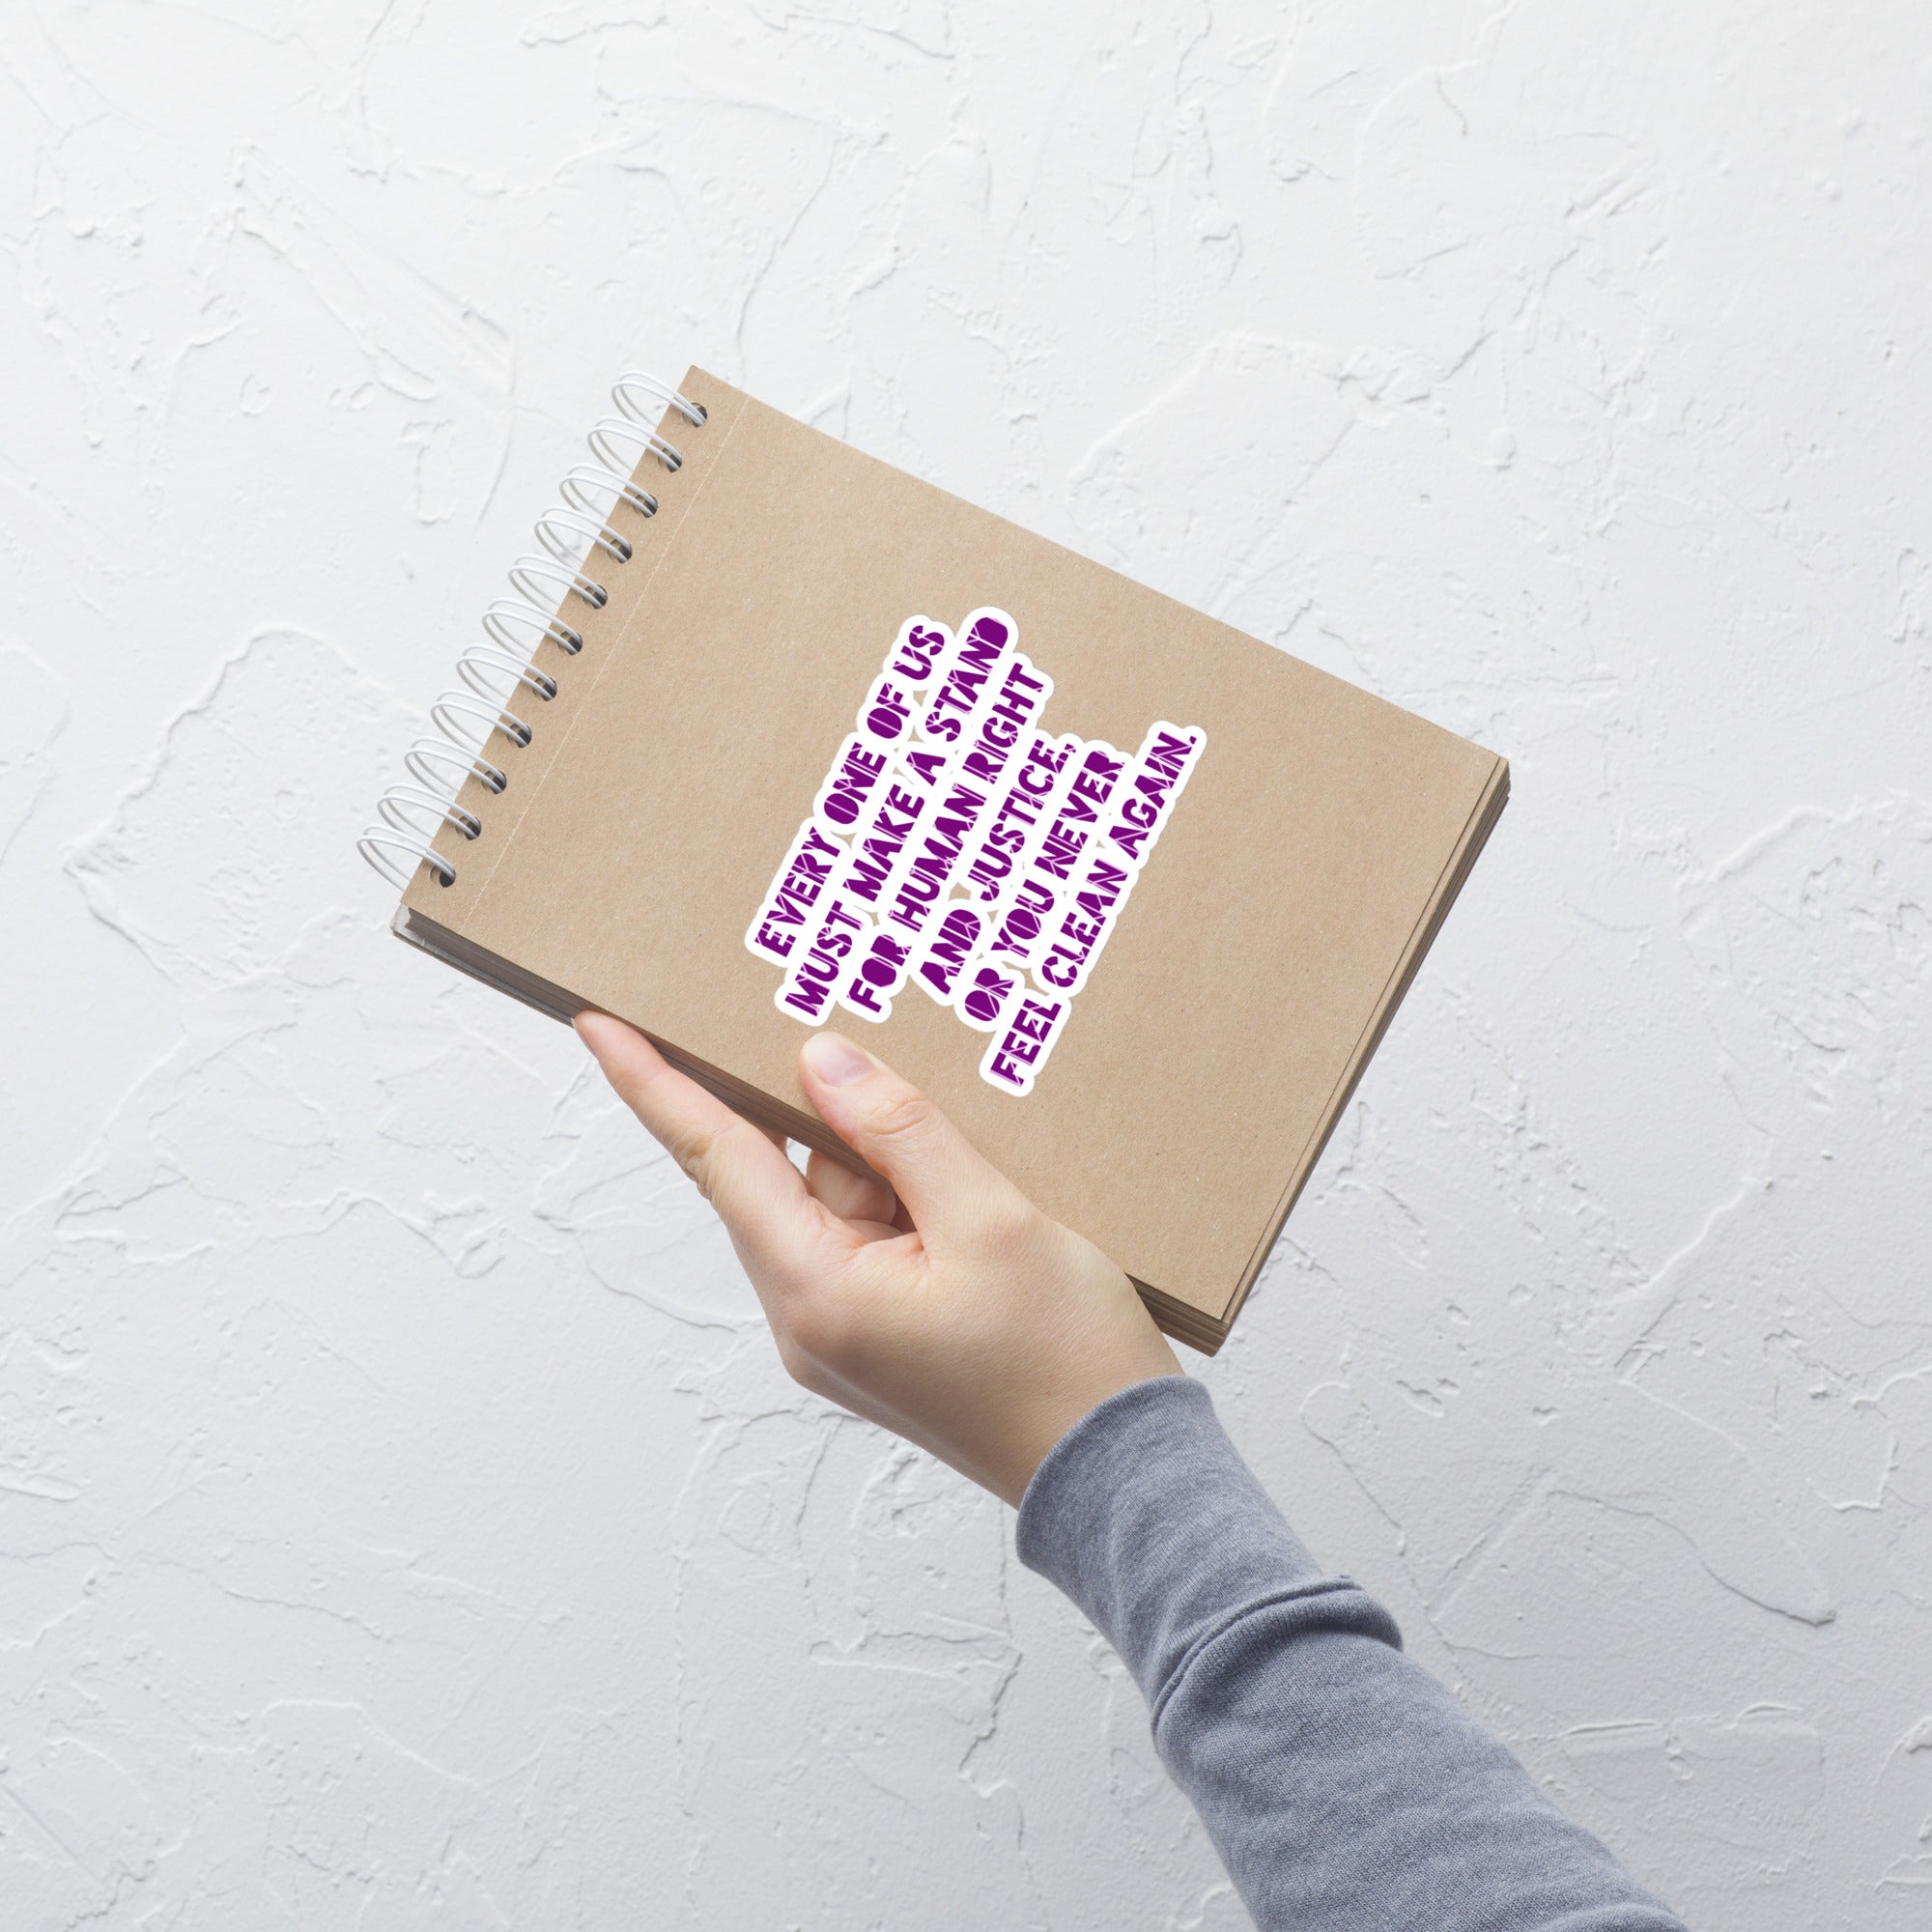 EVERY ONE OF US
MUST MAKE A STAND
FOR HUMAN RIGHT
AND JUSTICE,
OR YOU NEVER
FEEL CLEAN AGAIN.